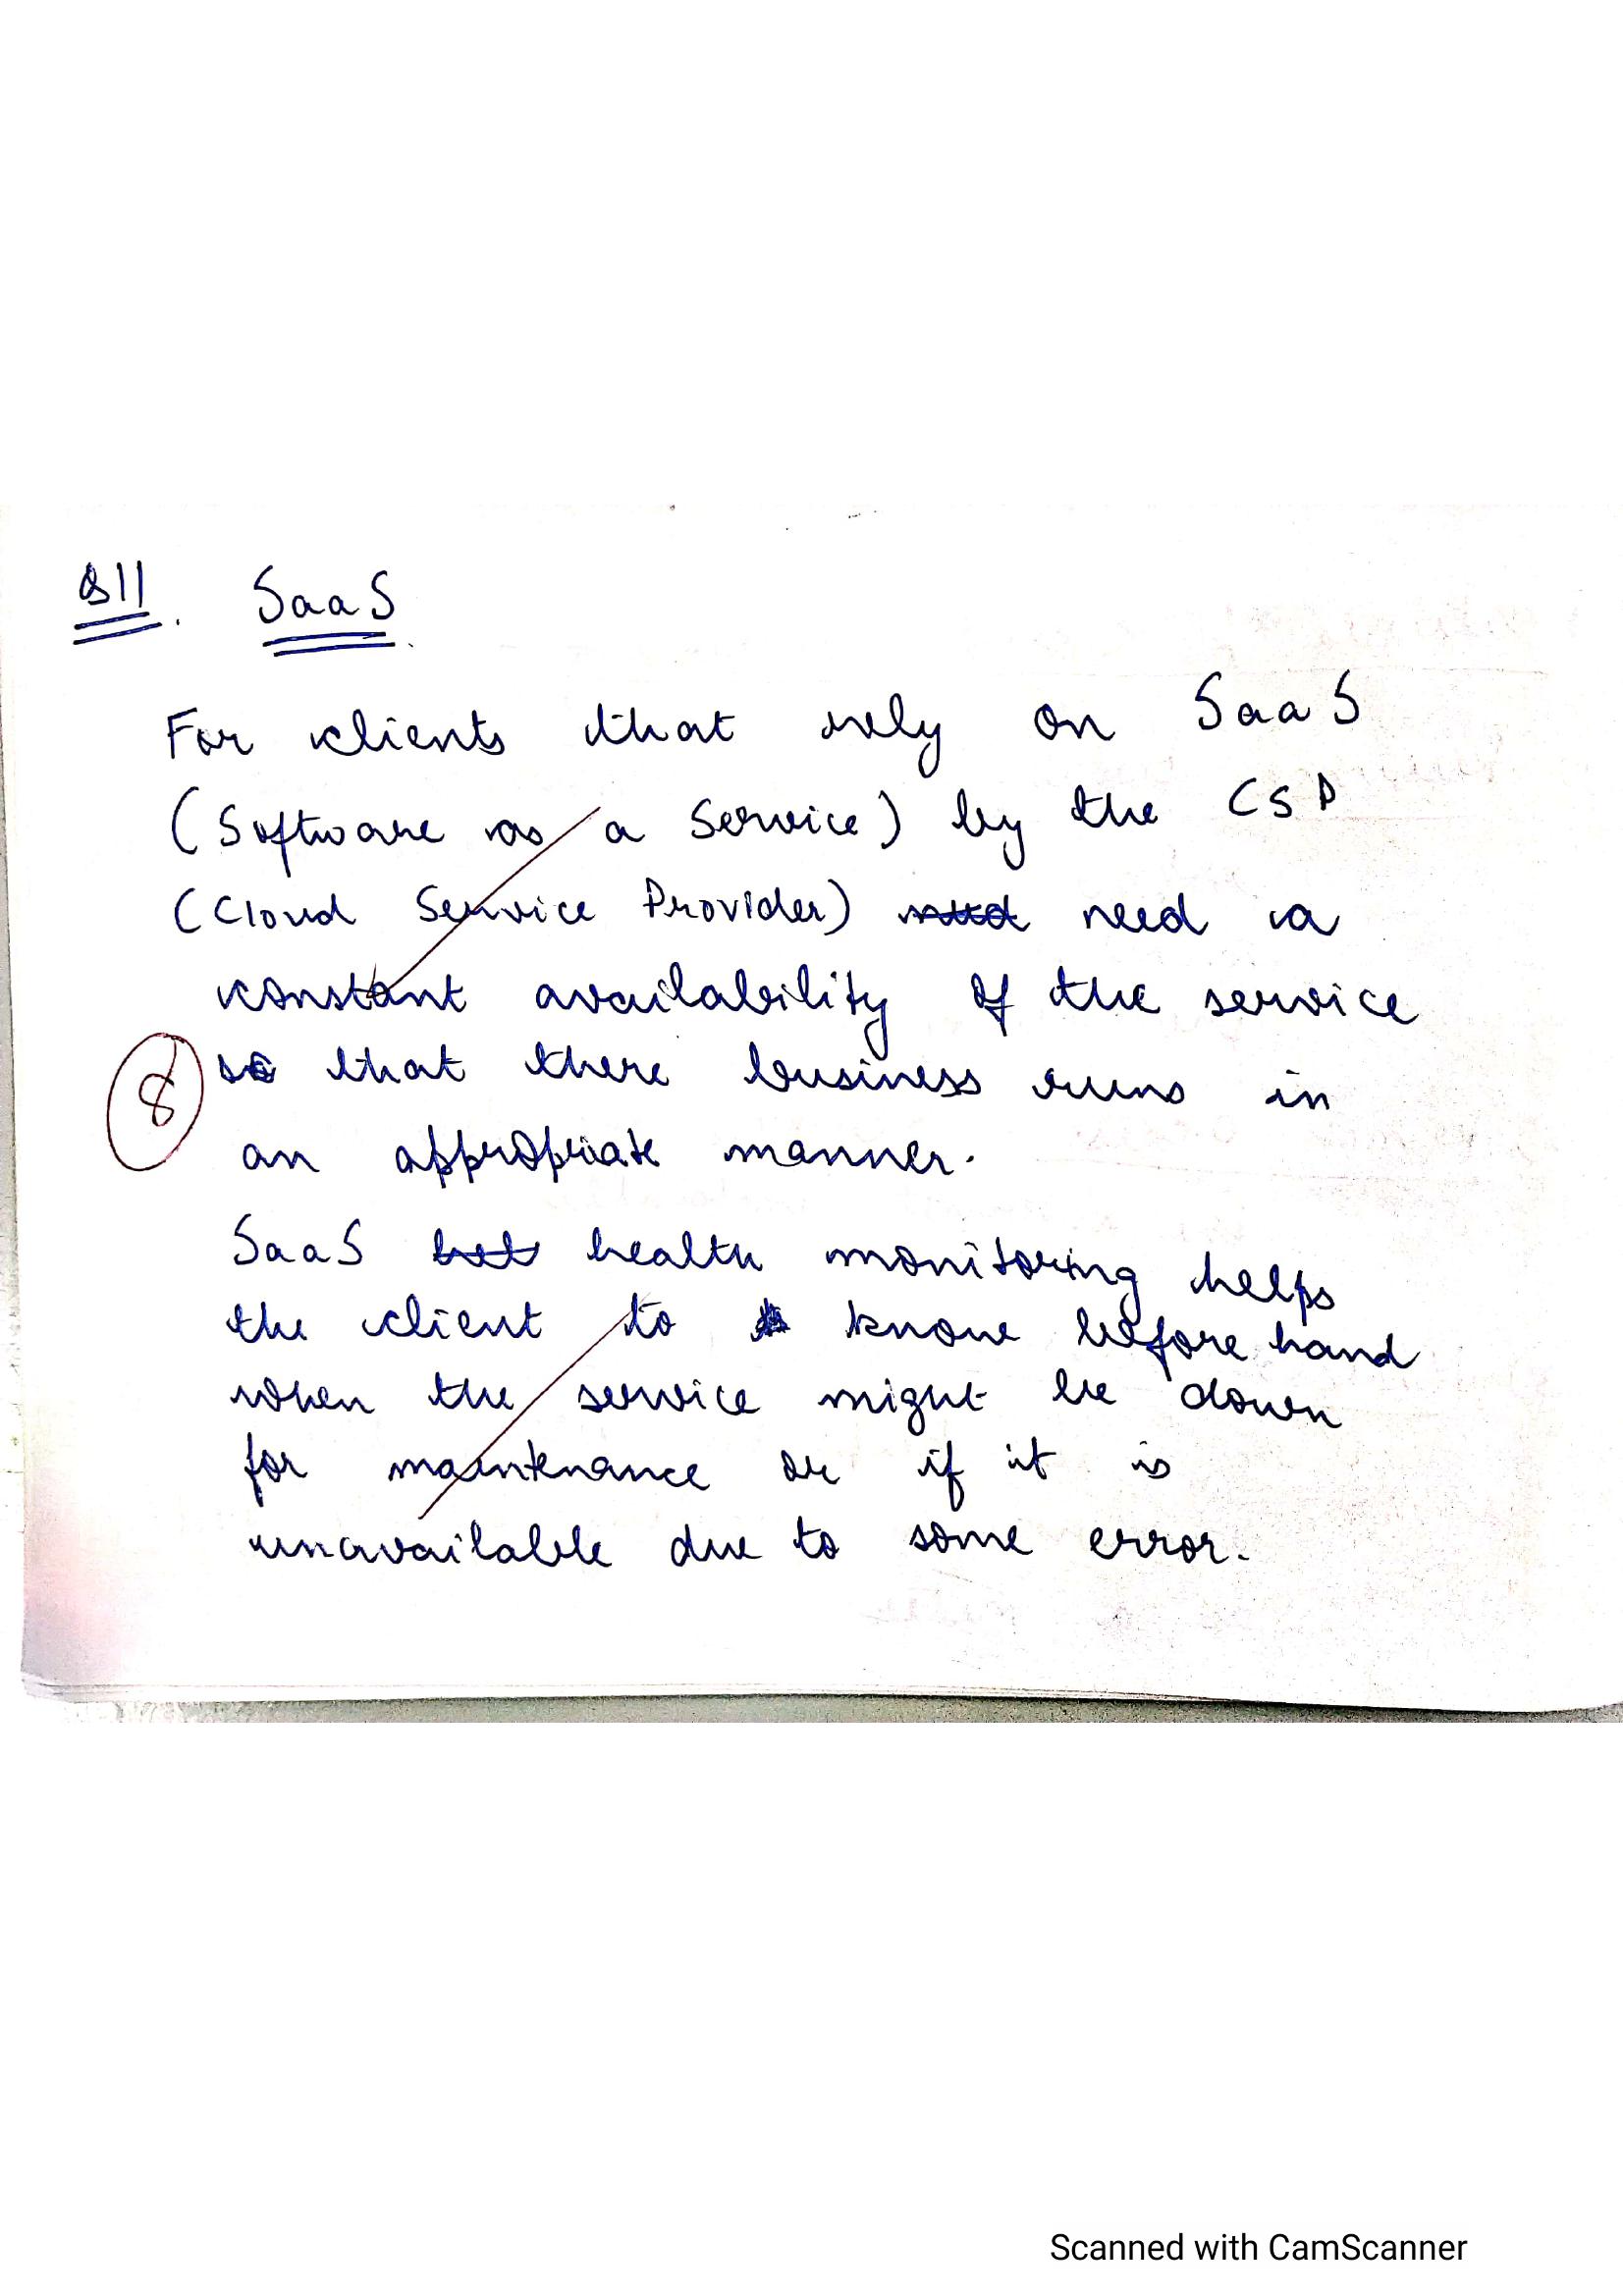 Q11. SaaS.
For clients that rely on SaaS
(Software as a Service) by the CSP
(Cloud Service Provider) need a
constant availability of the service
8 so that there business runs in
an appropriate manner.
SaaS health monitoring helps
the client to know before hand
when the service might be down
for maintenance or if it is
unavailable due to some error.
Scanned with CamScanner